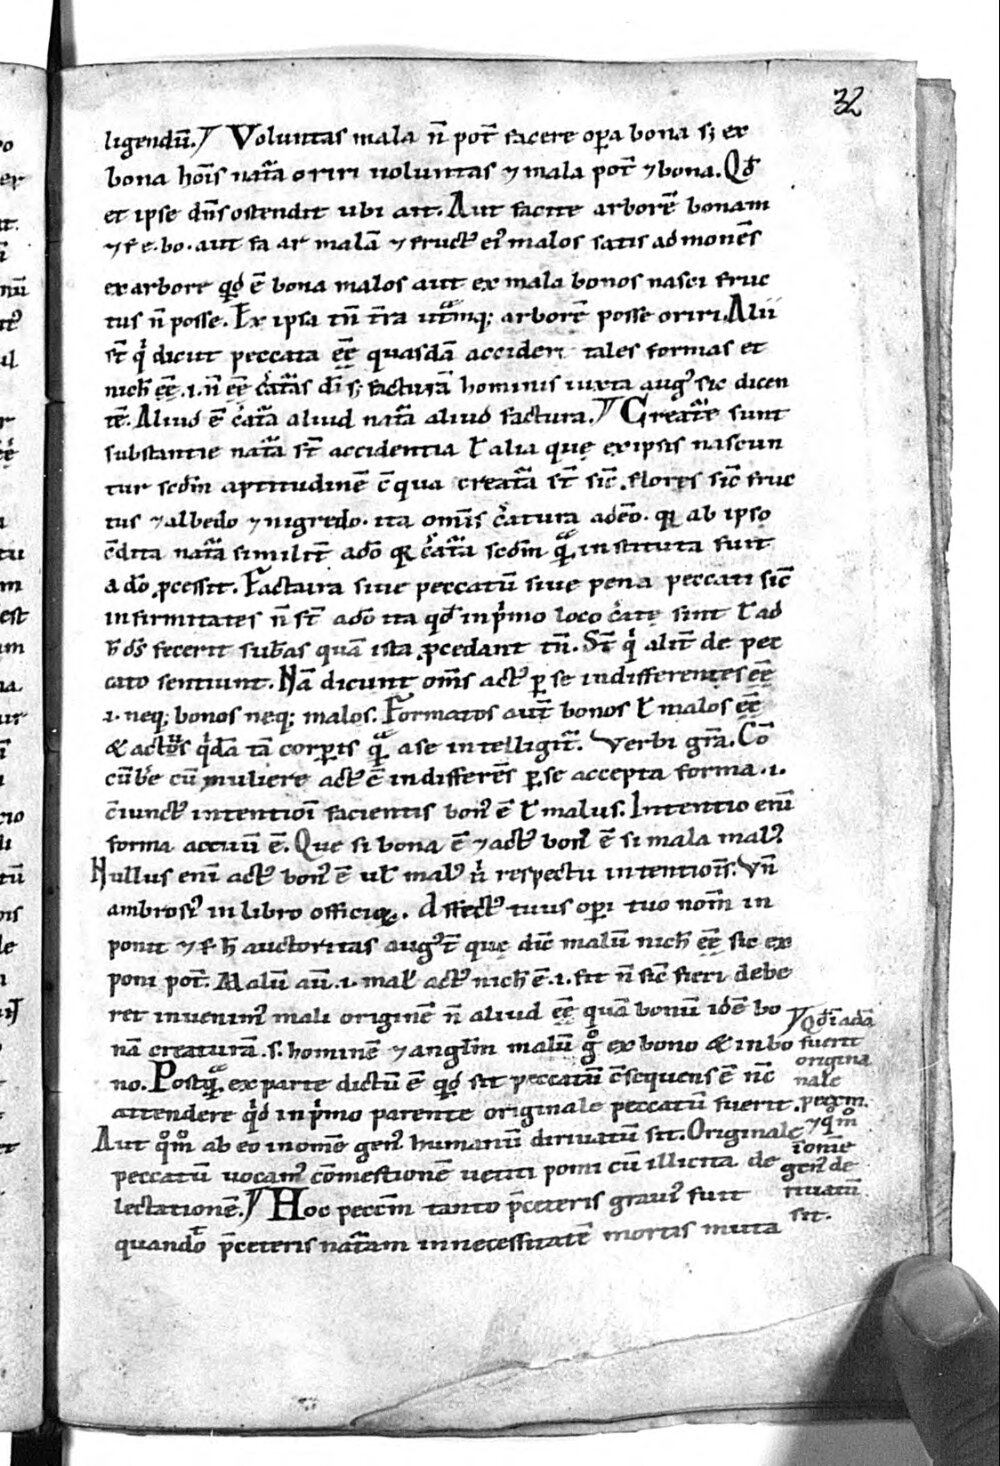 32
ligendū. Voluntas mala n̄ pot̄ facere oꝑa bona sꝫ ex
bona hoīs nat̄a oriri uoluntas ⁊ mala pot̄ ⁊ bona. Qđ
et ipse dn̄s ostendit ubi ait. Aut facite arborē bonam
⁊ f. e. bo. aut fa ar malā ⁊ fruct᷒ ei᷒ malos satis ad monēs
ex arbore qđ ē bona malos aut ex mala bonos nasci fruc
tus n̄ posse. Ex ipsa tn̄ t̄ra utᵃmqꝫ arborē posse oriri. Alii
st̄ qⁱ dicūt peccata ēē quasdā accideri tales formas et
nich̄ ēē .i. n̄ ēē c̄at̄as dī sꝫ facturā hominis iuxta aug᷒ sic dicen
tē. Aliud ē c̄at̄a aliud nat̄a aliud factura. Creat̄e sunt
substantie nat̄a st̄ accidentia ł alia quę ex ipsis nascun
tur scd̄m aptitudinē c̄ qua creat̄a st̄ sic̄ flores sic̄ fruc
tus ⁊ albedo ⁊ nigredo. ita om̄is c̄atura a deo. qꝛ ab ipso
c̄dita nat̄a similit̄ a dō qꝛ c̄at̄a scd̄m qᵃ instituta fuit
a dō ꝓcessit. Factura siue peccatū siue pena peccati sic̄
infirmitates n̄ st̄ a dō ita qđ in pⁱmo loco c̄ate sint ł ad
h̄ ds̄ fecerit sub̄as quā ista ꝓcedant tn̄. St̄ qⁱ alit̄ de pec
cato sentiunt. Nā dicunt om̄s act᷒ ꝑ se indifferentes ēē
.i. neqꝫ bonos neqꝫ malos. Formatos aut̄ bonos ł malos ēē
& act᷒ qⁱdā tā corꝑis qᵃ a se intelligit᷑. Verbi gr̄a. Cō
cūb̄e cū muliere act᷒ ē indifferēs ꝑ se accepta forma .i.
c̄iunct᷒ intentioī facientis bon᷒ ē ł malus. Intentio enī
forma actuū ē. Que si bona ē ⁊ act᷒ bon᷒ ē si mala mal᷒.
Nullus enī act᷒ bon᷒ ē uł mal᷒ nⁱ respectu intentiois̄. Vn̄
ambrosi᷒ in libro officioꝝ. Affect᷒ tuus oꝑi tuo nom̄ in
ponit ⁊ s̄ h̄ auctoritas aug᷒ t̄ quę dic̄ malū nich̄ ēē sic ex
poni pot̄. Malū aū .i. mal᷒ act᷒ nich̄ ē .i. fit n̄ sic̄ fieri debe
ret inuenim᷒ mali originē n̄ aliud ēē quā bonū idē bo
nā creaturā .s. hominē ⁊ angl̄m malū gᵒ ex bono & in bo
no. Postqᵃ ex parte dictū ē qđ sit peccatū c̄sequens ē nc̄
attendere qⁱd in pⁱmo parente originale peccatū fuerit.
Aut qᵒmᵒ ab eo in om̄e gen᷒ humanū diriuatū sit. Originale
peccatū uocam᷒ cōmestionē uetiti pomi cū illicita de
lectationē. Hoc pecc̄m tanto p̄ceteris graui᷒ fuit
quando p̄ceteris nat̄am in necessitatē mortis muta
Qđ in adā
fuerit
origina
nale
pecc̄m.
⁊ qᵒmᵒ
ī om̄e
gen᷒ de
riuatū
sit.